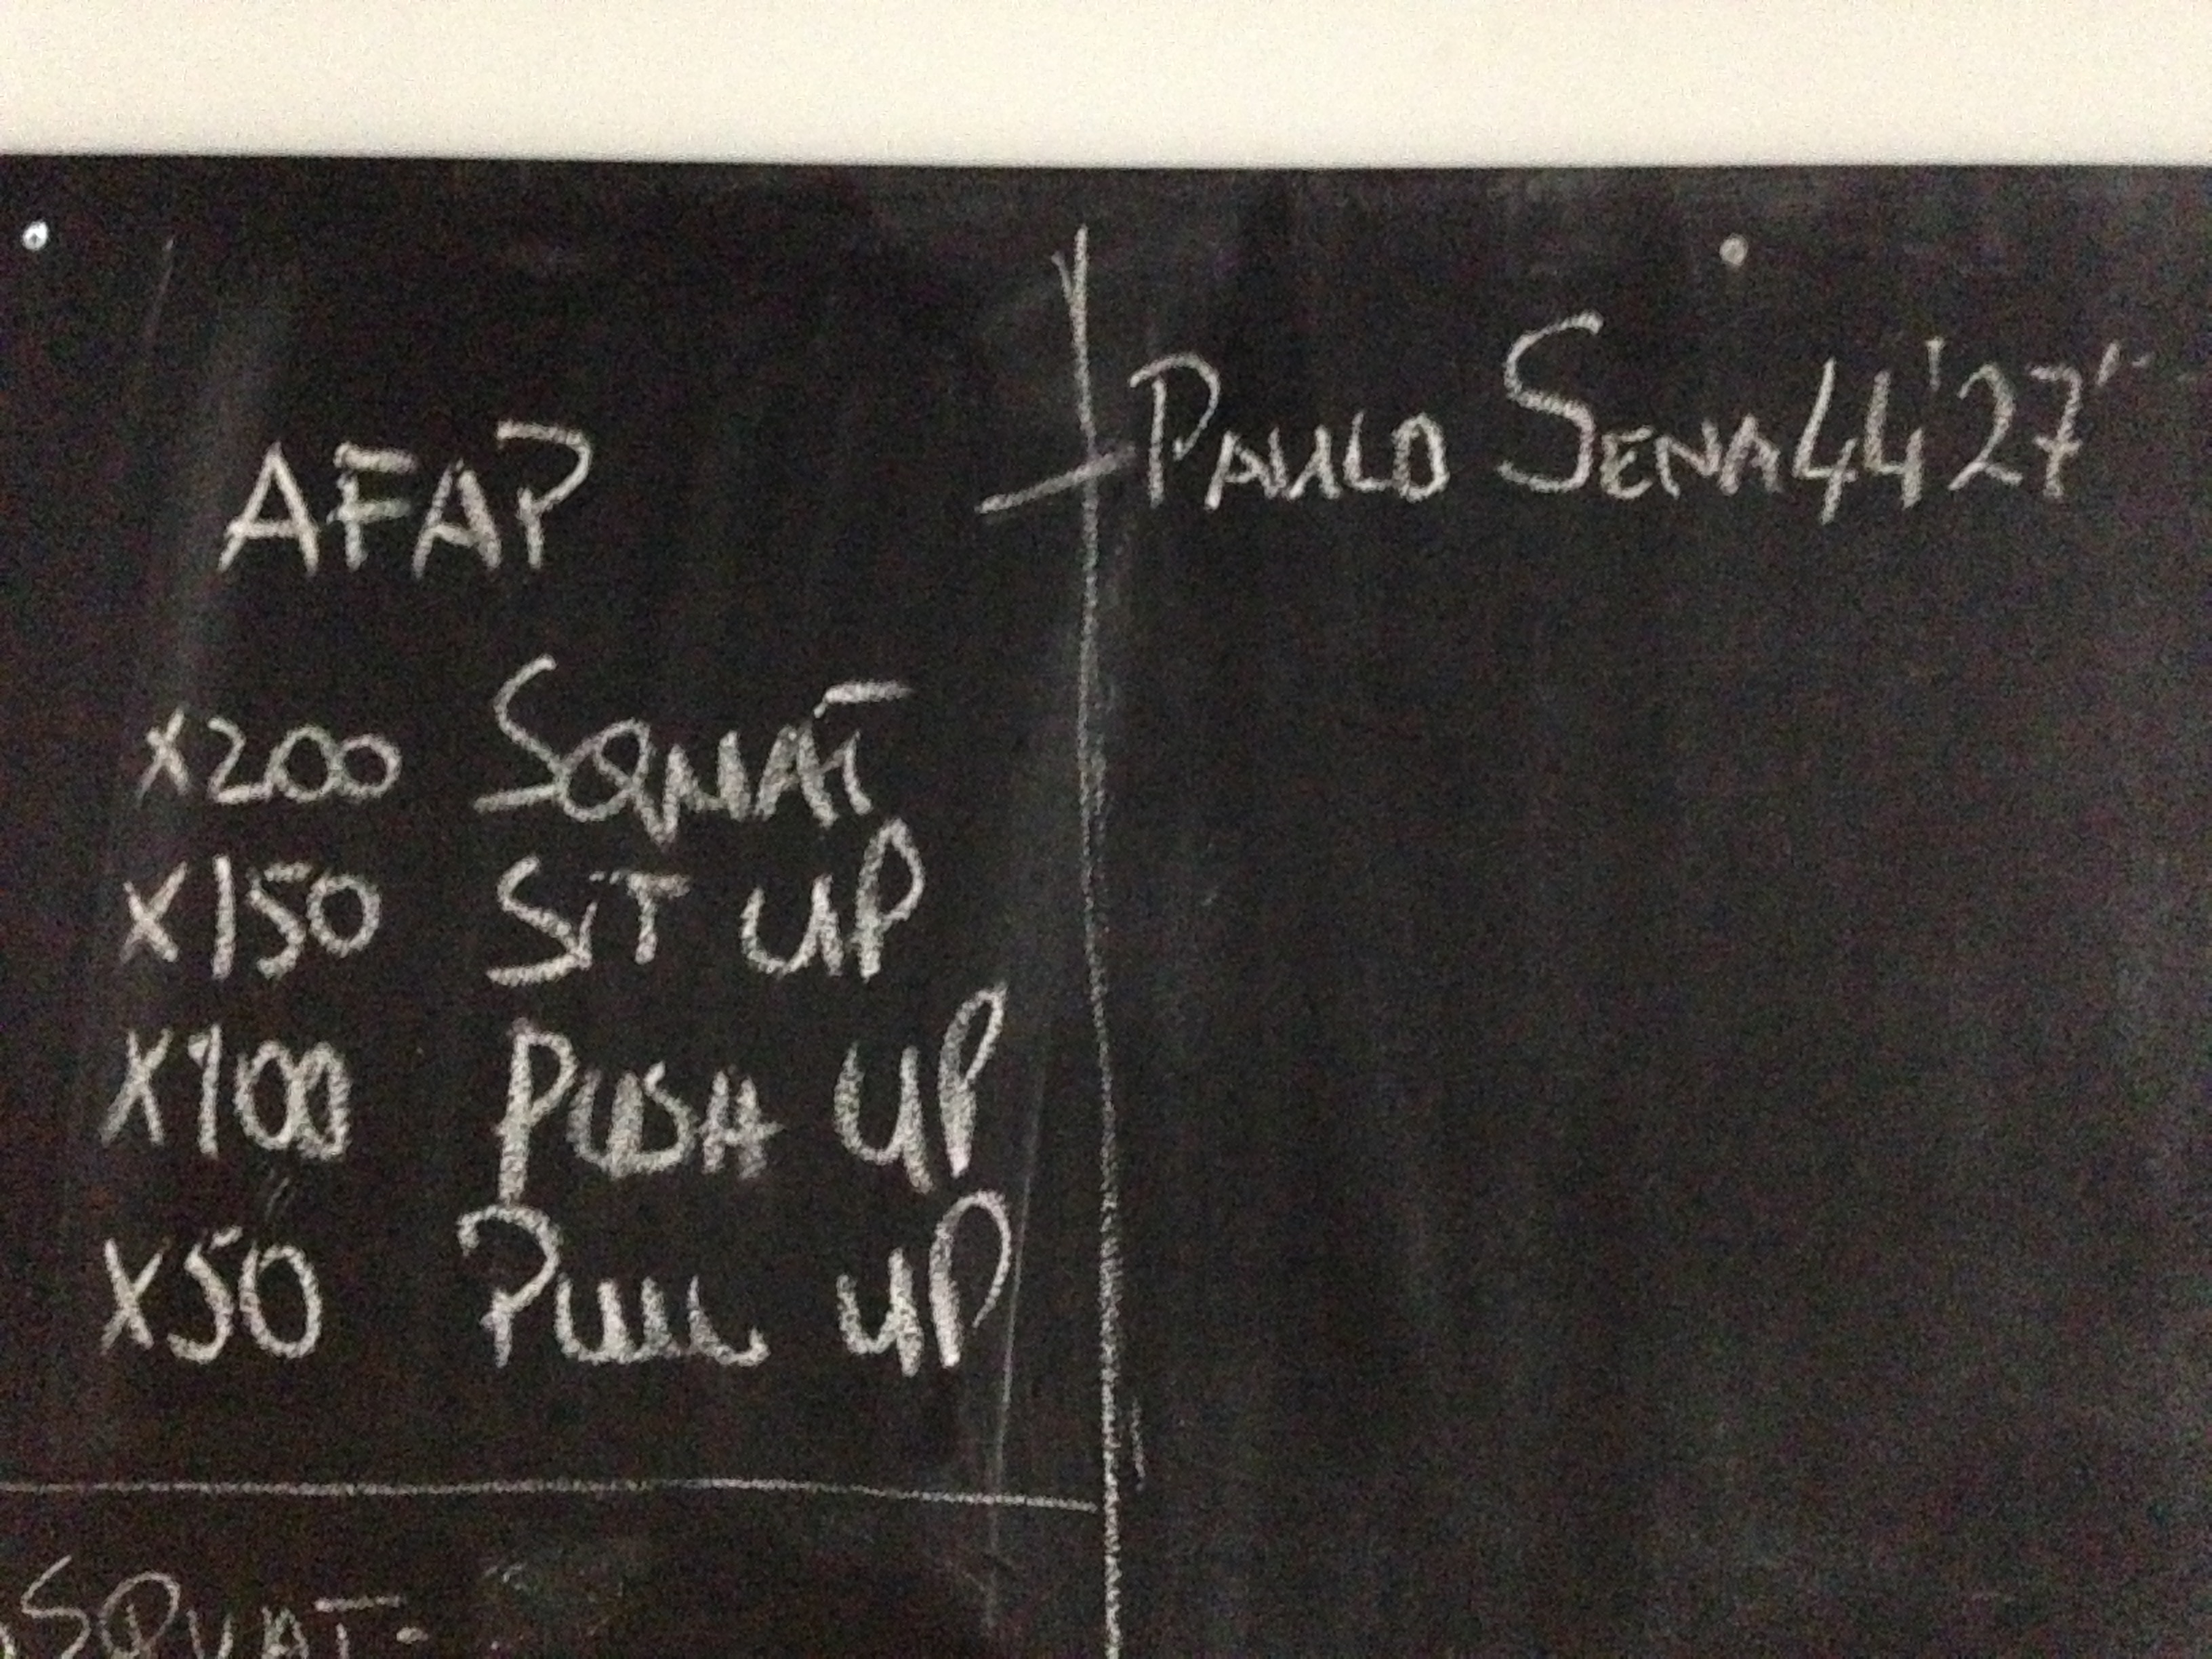 AFAP
x200 SQUAT
x150 SiT UP
x100 PUSH UP
x50 PULL UP
SQUAT-
PAULO SENA 44'27''